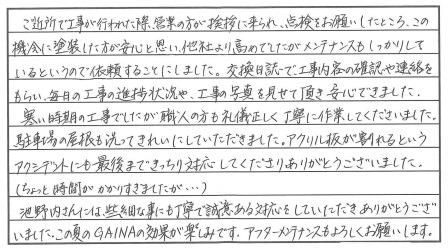 ご近所で工事が行われた際、営業の方が挨拶に来られ、点検をお願いしたところ、この
機会に塗装した方が安心と思い、他社より高めでしたがメンテナンスもしっかりして
いるというので依頼することにしました。交換日誌で工事内容の確認や連絡を
もらい、毎日の工事の進捗状況や、工事の写真を見せて頂き安心できました。
寒い時期の工事でしたが職人の方も礼儀正しく丁寧に作業してくださいました。
駐車場の屋根も洗ってきれいにしていただきました。アクリル板が割れるという
アクシデントにも最後まできっちり対応してくださりありがとうございました。
(ちょっと時間がかかりすぎましたが…)
池野内さんには、些細な事にも丁寧で誠意ある対応をしていただきありがとうござ
いました。この夏のGAINAの効果が楽しみです。アフターメンテナンスもよろしくお願いします。